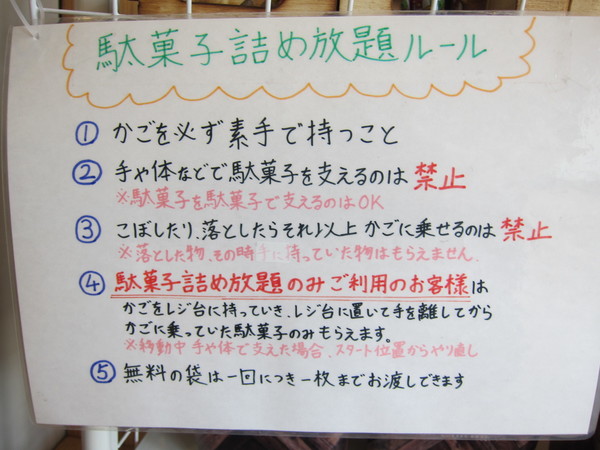 駄菓子詰め放題ルール
① かごを必ず素手で持つこと
② 手や体などで駄菓子を支えるのは 禁止
※駄菓子を駄菓子で支えるのはOK
③ こぼしたり、落としたらそれより以上 かごに乗せるのは 禁止
※落とした物、その時手に持っていた物はもらえません。
④ 駄菓子詰め放題のみご利用のお客様は
かごをレジ台に持っていき、レジ台に置いて手を離してから
かごに乗っていた駄菓子のみもらえます。
※移動中 手や体で支えた場合、スタート位置からやり直し
⑤ 無料の袋は一回につき一枚までお渡しできます